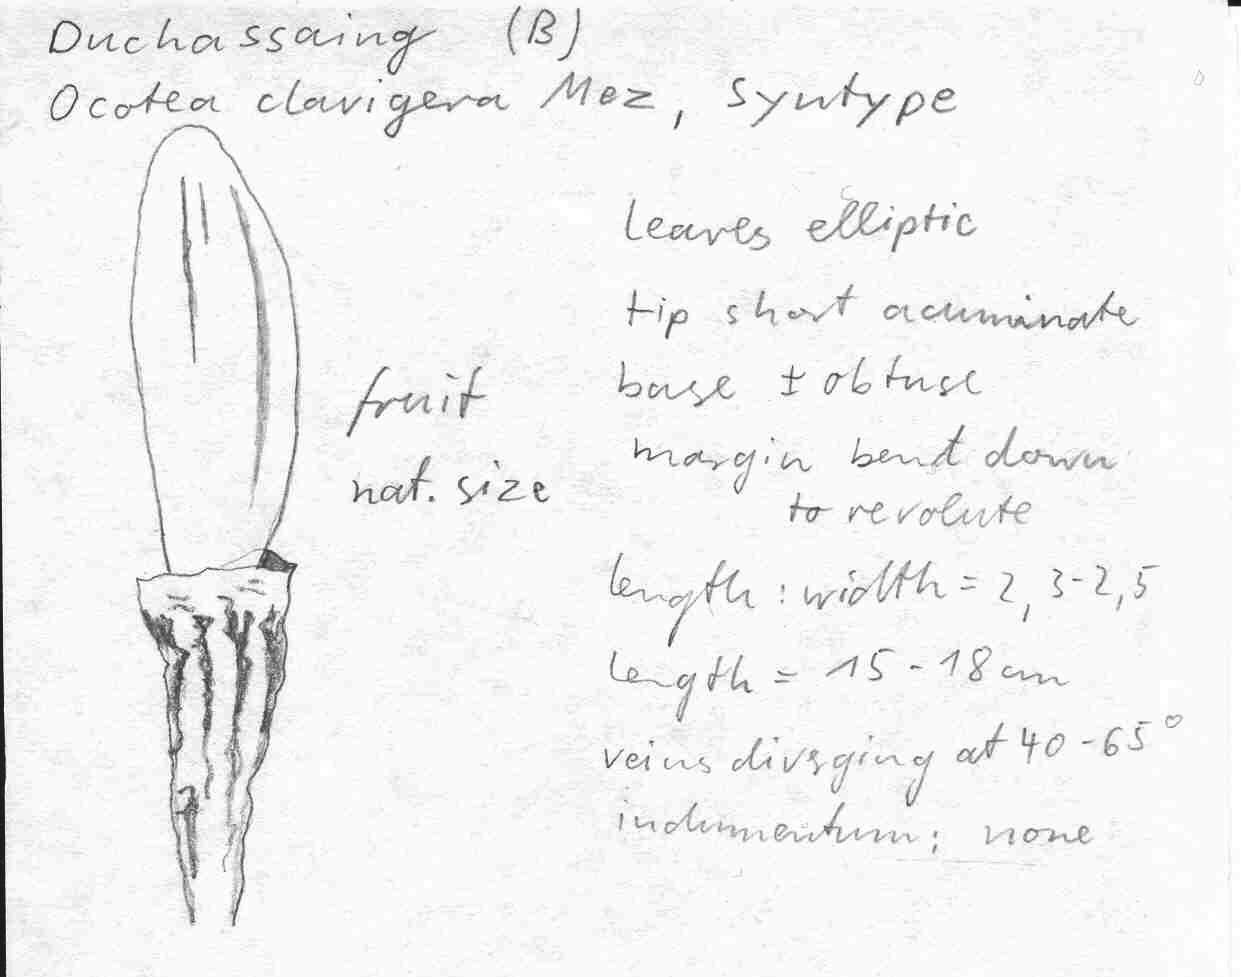 Duchassaing (B)
Ocotea clavigera Mez, Syntype
leaves elliptic
tip short acuminate
fruit
base ± obtuse
margin bent down
nat. size
to revolute
length : width = 2,3-2,5
length = 15 - 18 cm
veins diverging at 40-65°
indumentum: none